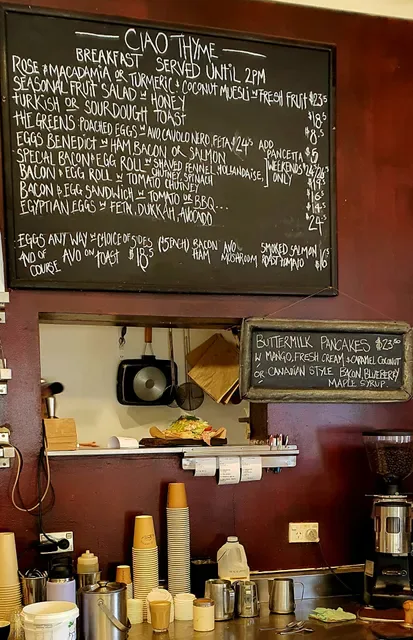 CIAO THYME
BREAKFAST SERVED UNTIL 2PM
ROSE & MACADAMIA OR TURMERIC & COCONUT MUESLI W FRESH FRUIT $23.5
SEASONAL FRUIT SALAD W HONEY $18.5
TURKISH OR SOURDOUGH TOAST $8.5
THE GREENS: POACHED EGGS W AVO CAVOLO NERO, FETA $24.5 ADD PANCETTA $5
EGGS BENEDICT W HAM BACON OR SALMON WEEKENDS ONLY
SPECIAL BACON & EGG ROLL W SHAVED FENNEL, HOLLANDAISE,
CHUTNEY, SPINACH
BACON & EGG ROLL W TOMATO CHUTNEY
BACON & EGG SANDWICH W TOMATO OR BBQ...
EGYPTIAN EGGS W FETA, DUKKAH, AVOCADO $24
EGGS ANY WAY W CHOICE OF SIDES BACON AVO SMOKED SALMON
HAM MUSHROOM ROAST TOMATO $16
AND OF COURSE AVO ON TOAST $18.5
BUTTERMILK PANCAKES $23.50
W MANGO, FRESH CREAM & CARAMEL COCONUT
OR CANADIAN STYLE BACON, BLUEBERRY
MAPLE SYRUP.